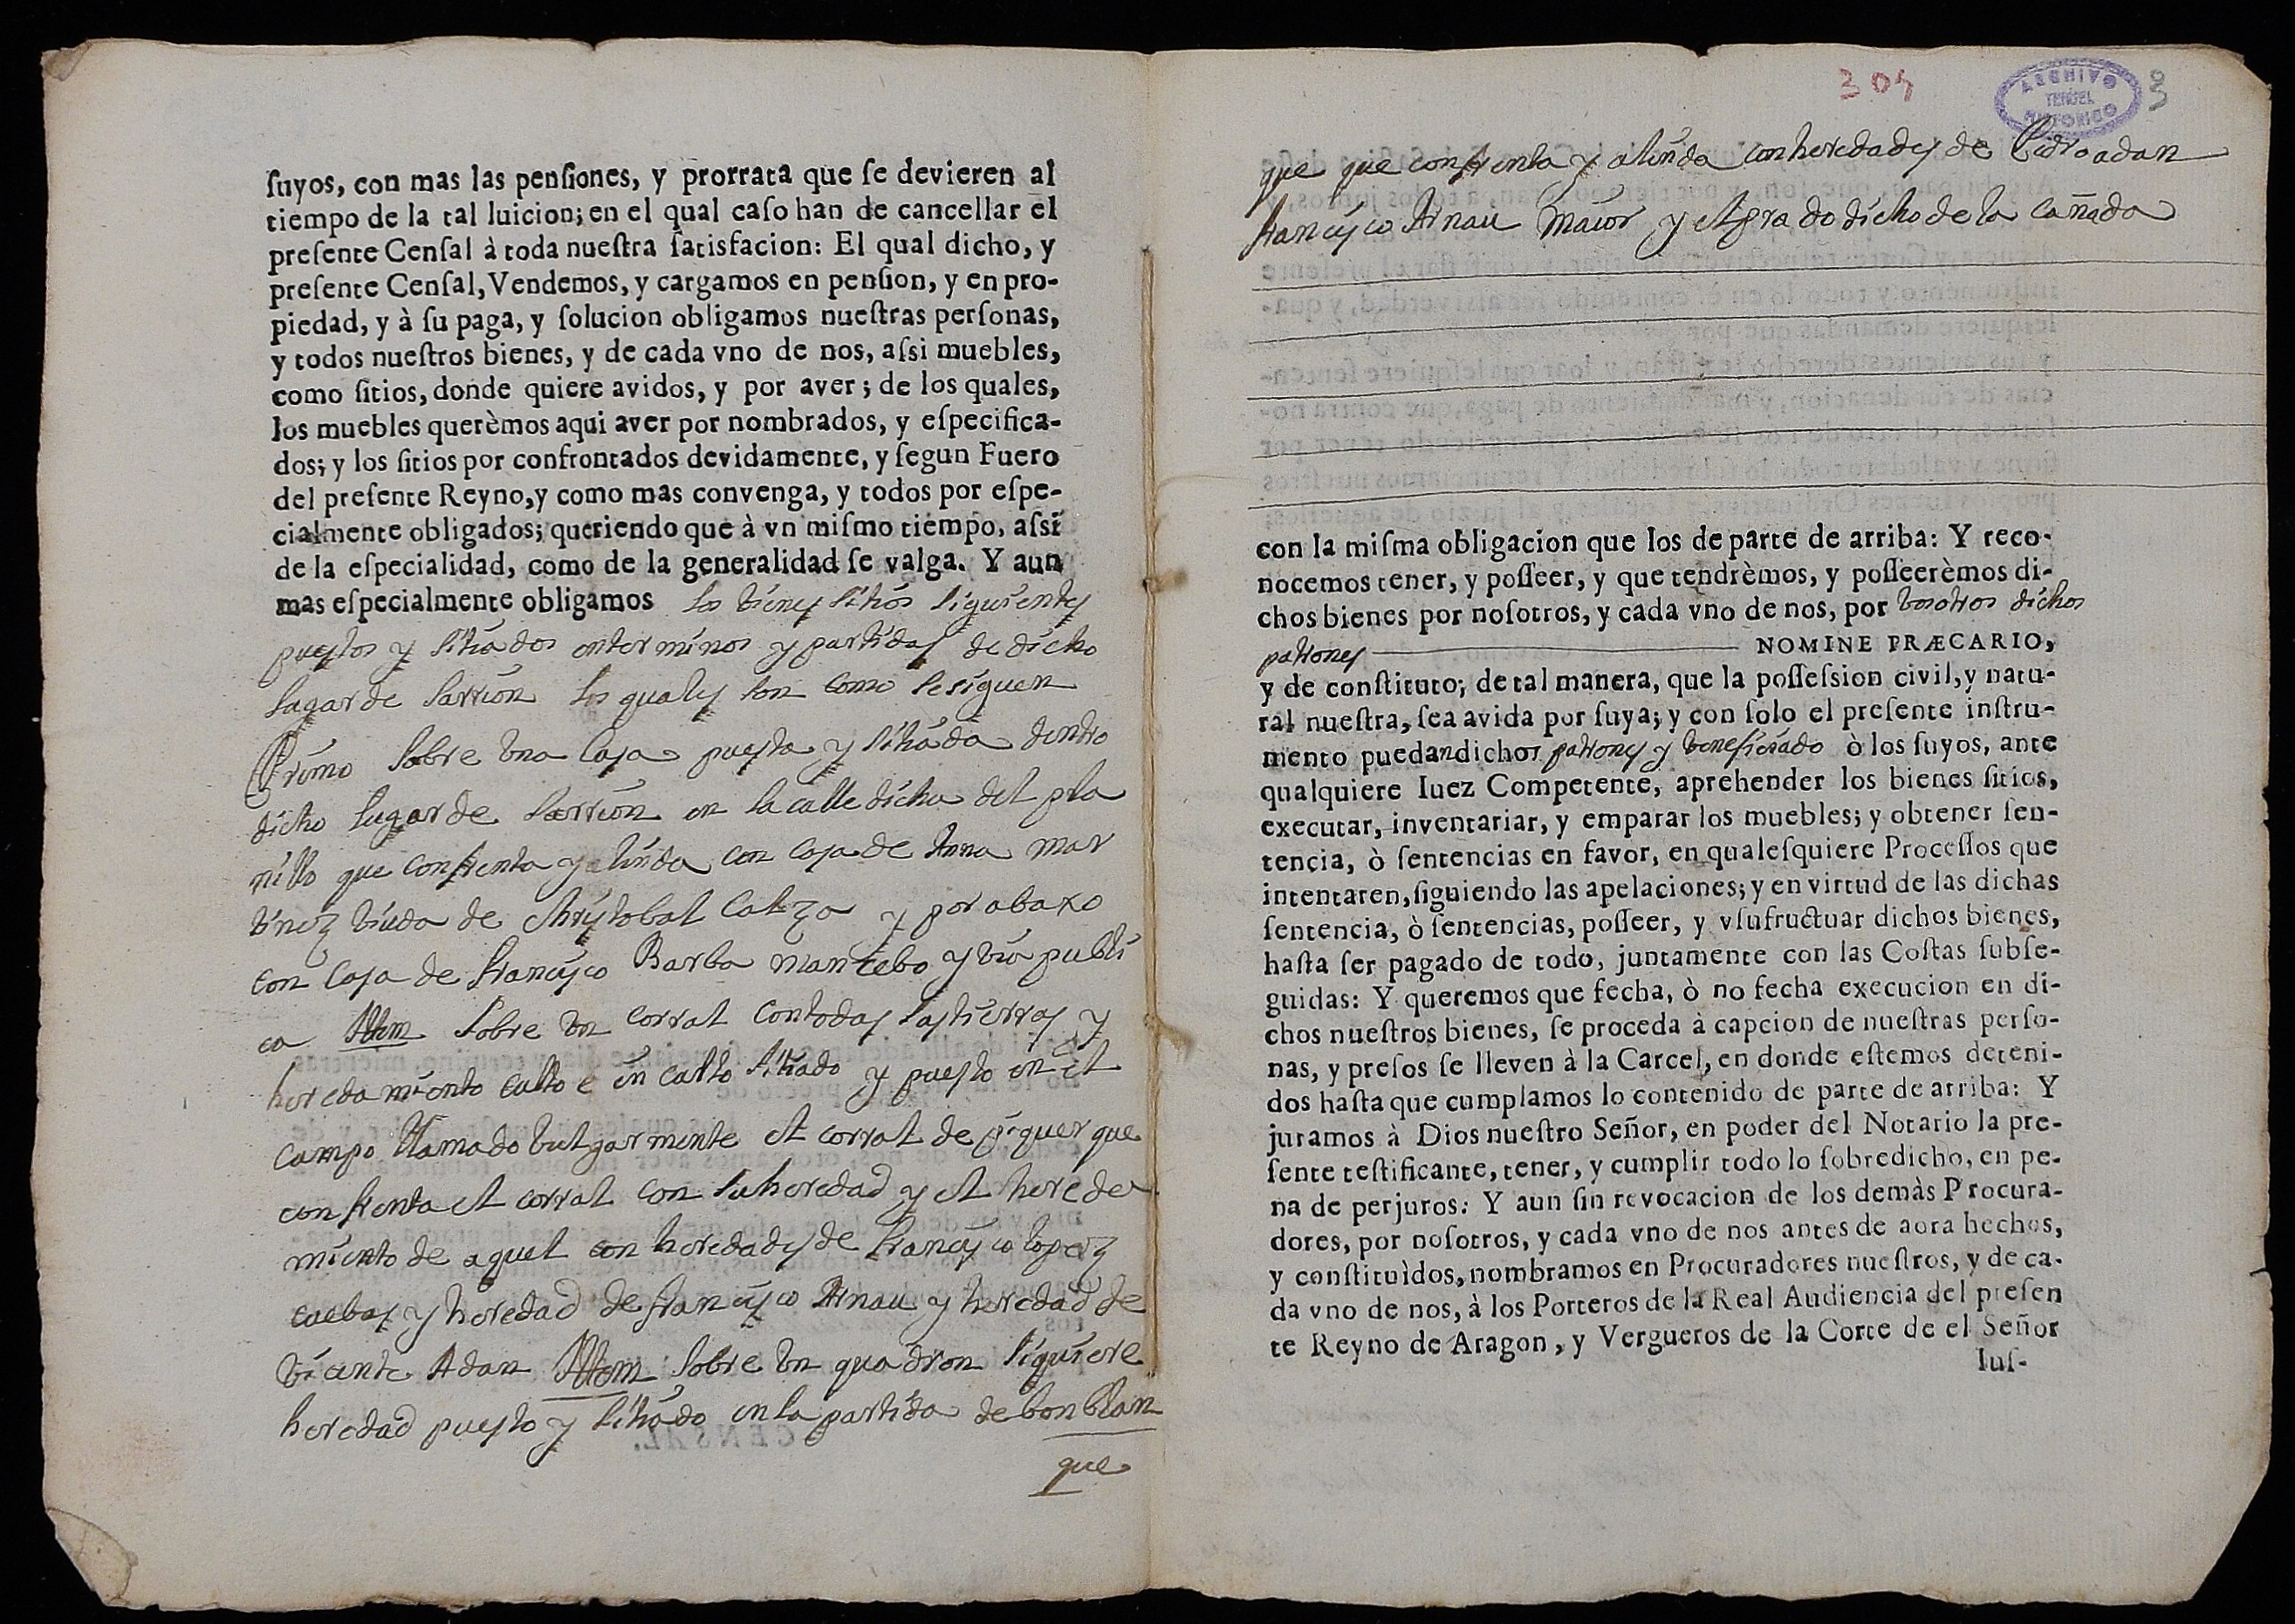 ſuyos, con mas las penſiones, y prorrata que ſe devieren al
tiempo de la tal luicion; en el qual caſo han de cancellar el
preſente Cenſal à toda nueſtra ſatisfacion: El qual dicho, y
preſente Cenſal, Vendemos, y cargamos en penſion, y en pro-
piedad, y à ſu paga, y ſolucion obligamos nueſtras perſonas,
y todos nueſtros bienes, y de cada vno de nos, aſsi muebles,
como ſitios, donde quiere avidos, y por aver; de los quales,
los muebles querèmos aqui aver por nombrados, y eſpecifica-
dos; y los ſitios por confrontados devidamente, y ſegun Fuero
del preſente Reyno, y como mas convenga, y todos por eſpe-
cialmente obligados; queriendo que à vn miſmo tiempo, aſsi
de la eſpecialidad, como de la generalidad ſe valga. Y aun
mas eſpecialmente obligamos los bienes sitios siguientes
puestos y sitiados enterminos y partidas de dicho
lugar de Sarrion los quales son como sesiguen
Primo sobre una casa puesta y sitiada dentro
dicho lugar de Sarrion en la calle dicha del pla
nillo que confrenta y alinda con casa de Anna mar
tinez viuda de christobal Calza y por abaxo
con casa de francisco Barba mancebo y via publi
ca Ittem sobre un corral contodas lastierras y
hereda miento culto e in culto sitiado y puesto en el
campo llamado bulgarmente el corral de piquer que
confrenta el corral con su heredad y el hereda
miento de aquel con heredades de francisco lopez
cuebas y heredad de francisco Arnau y heredad de
vicente Adan Ittem sobre un quadron siquiere
heredad puesto y sitiado en la partida de bon blan
que
304
ARCHIVO
HISTORICO
TERUEL
3
que que confrenta y alinda con heredades de Pedro adan
francisco Arnau maior y el prado dicho de la cañada
con la miſma obligacion que los de parte de arriba: Y reco-
nocemos tener, y poſſeer, y que tendrèmos, y poſſeerèmos di-
chos bienes por noſotros, y cada vno de nos, por vosotros dichos
patrones NOMINE PRÆCARIO,
y de conſtituto; de tal manera, que la poſſeſsion civil, y natu-
ral nueſtra, ſea avida por ſuya; y con ſolo el preſente inſtru-
mento puedandichos patrones y beneficiado ò los ſuyos, ante
qualquiere Iuez Competente, aprehender los bienes ſitios,
executar, inventariar, y emparar los muebles; y obtener ſen-
tencia, ò ſentencias en favor, en qualeſquiere Proceſſos que
intentaren, ſiguiendo las apelaciones; y en virtud de las dichas
ſentencia, ò ſentencias, poſſeer, y vſufructuar dichos bienes,
haſta ſer pagado de todo, juntamente con las Coſtas ſubſe-
guidas: Y queremos que fecha, ò no fecha execucion en di-
chos nueſtros bienes, ſe proceda à capcion de nueſtras perſo-
nas, y preſos ſe lleven à la Carcel, en donde eſtemos deteni-
dos haſta que cumplamos lo contenido de parte de arriba: Y
juramos à Dios nueſtro Señor, en poder del Notario la pre-
ſente teſtificante, tener, y cumplir todo lo ſobredicho, en pe-
na de perjuros: Y aun ſin revocacion de los demàs Procura-
dores, por noſotros, y cada vno de nos antes de aora hechos,
y conſtituìdos, nombramos en Procuradores nueſtros, y de ca-
da vno de nos, à los Porteros de la Real Audiencia del preſen
te Reyno de Aragon, y Vergueros de la Corte de el Señor
Iuſ-